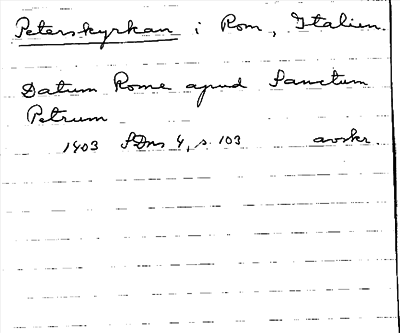 Peterskyrkan i Rom, Italien.
Datum Rome apud Sanctum
Petrum
1403 SDns 4, s. 103 avskr.